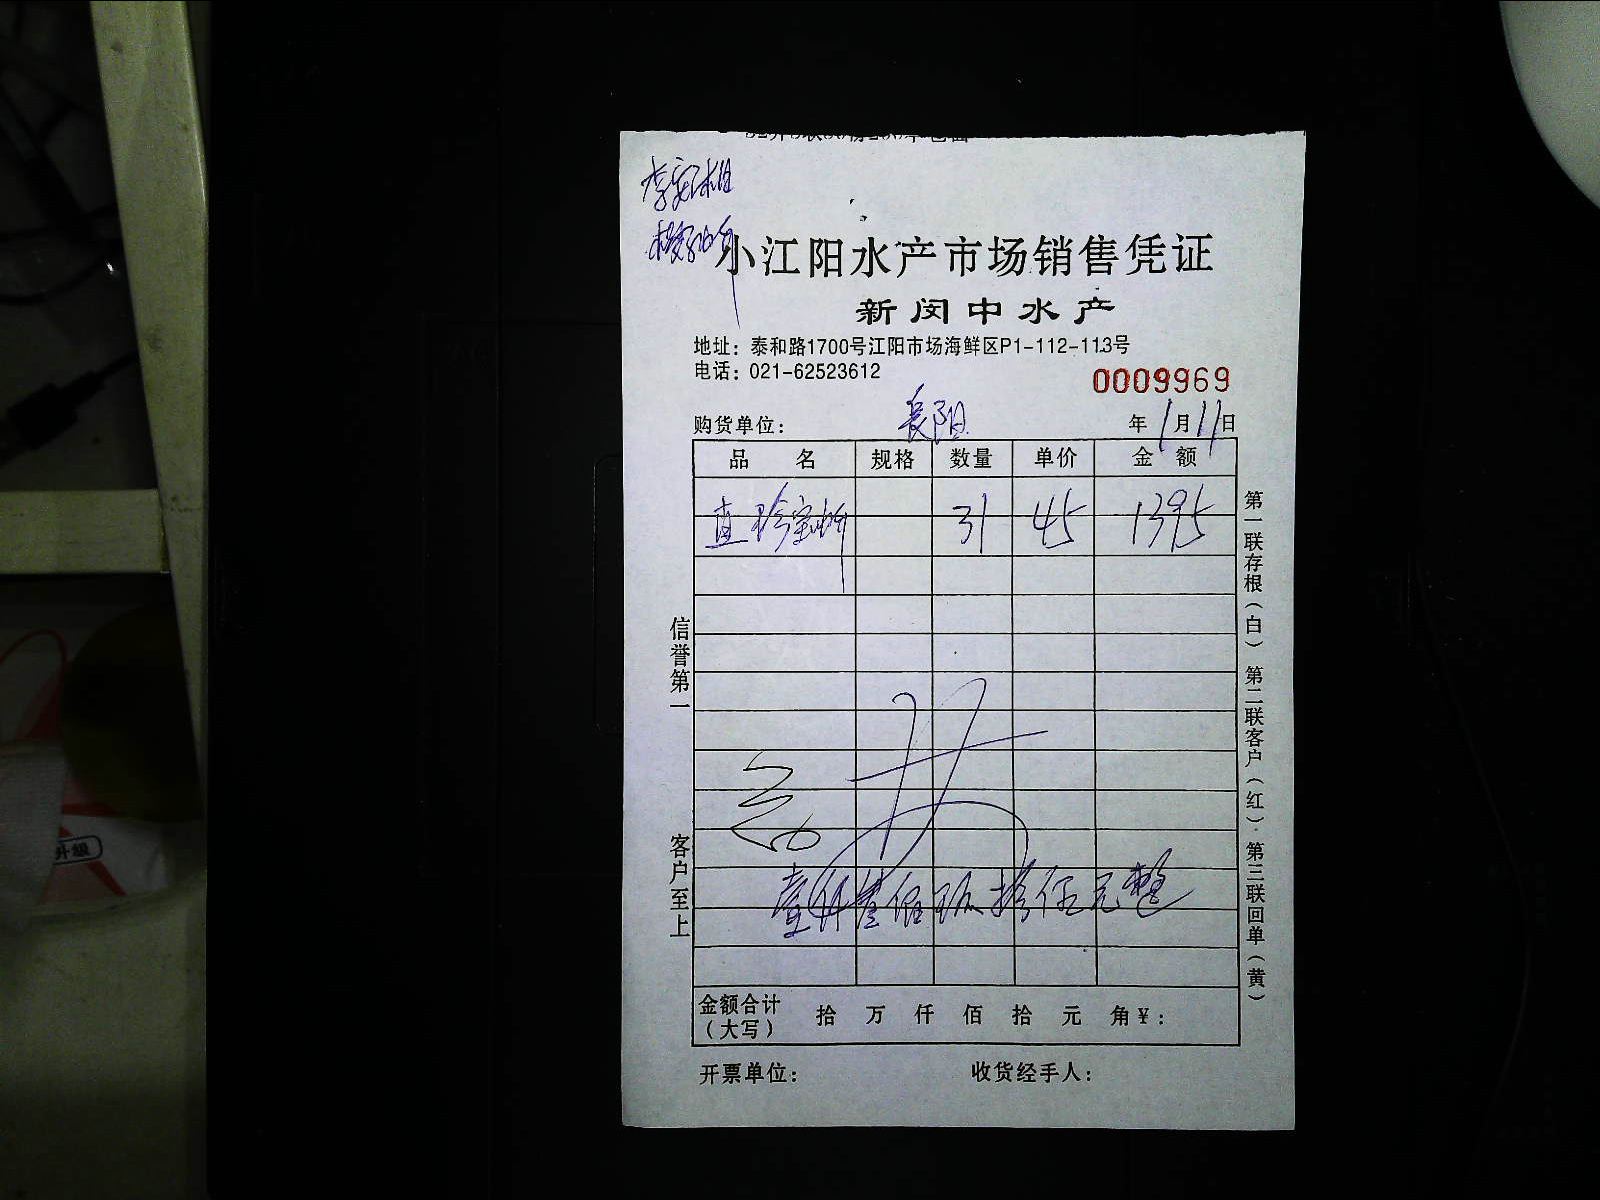 小江阳水产市场销售凭证
新闵中水产
地址：泰和路1700号江阳市场海鲜区P1-112-113号
电话：021-62523612
0009969
购货单位：长阳 年1月11日
品 名 规格 数量 单价 金 额
31 45 1395
壹仟叁佰玖拾伍元整
金额合计（大写） 拾 万 仟 佰 拾 元 角¥：
开票单位： 收货经手人：
信誉第一 客户至上
第一联存根（白） 第二联客户（红） 第三联回单（黄）
升级